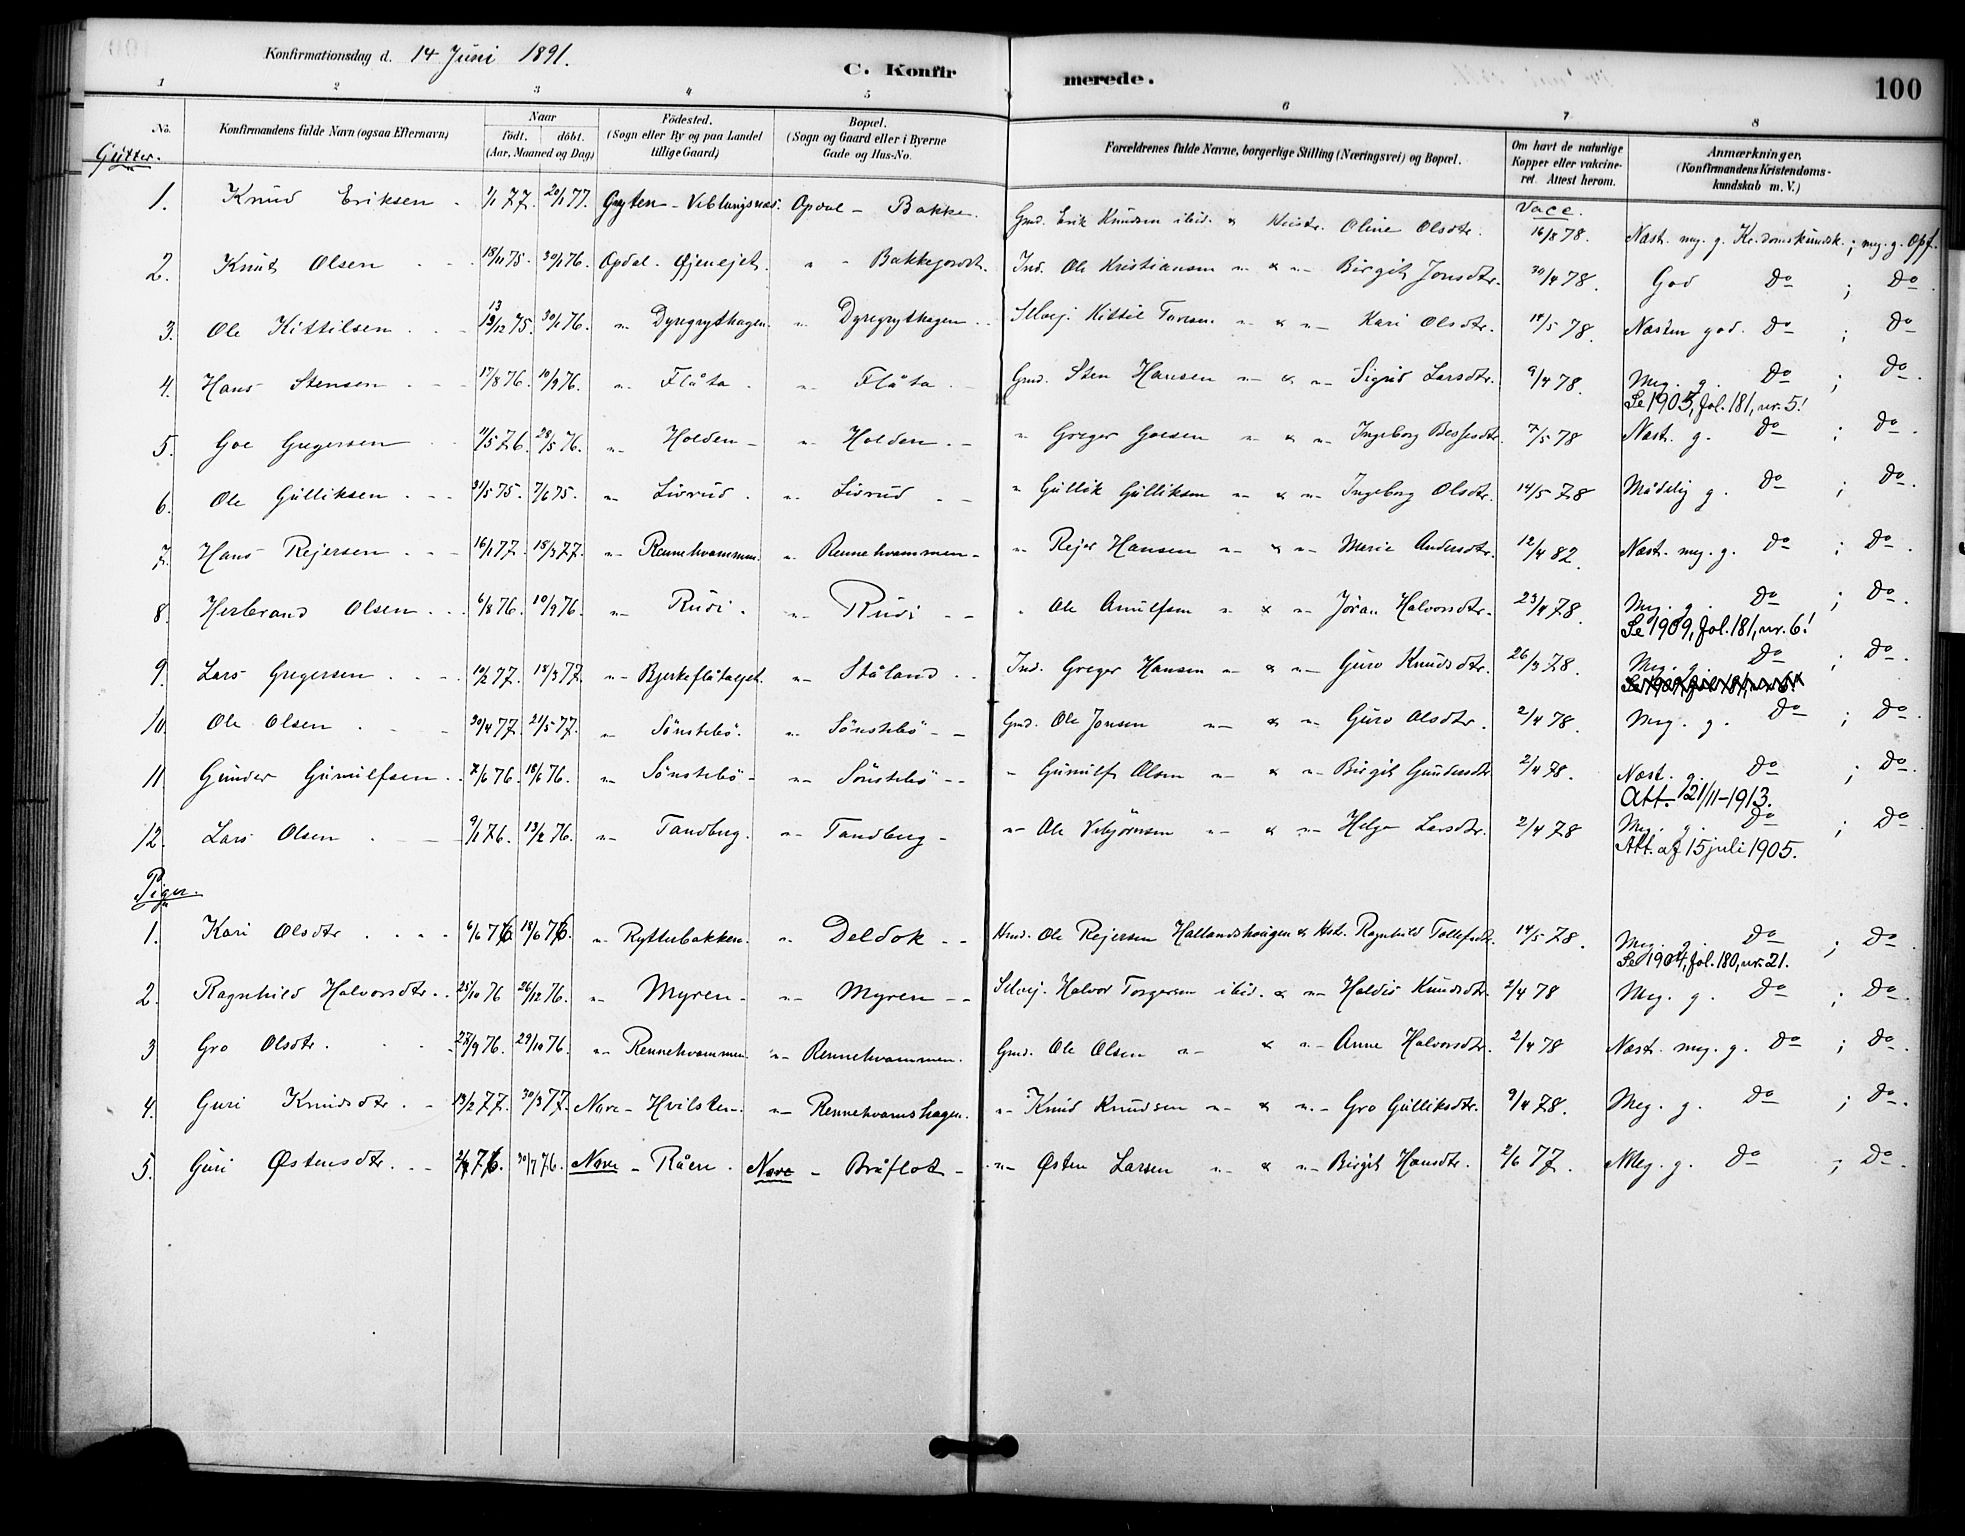 Konfirmationsdag d. 14 Juni 1891.
C. Konfir merede. 100
1 2 3 4 5 6 7 8
No. Konfirmandens fulde Navn (ogsaa Efternavn) Naar födt. döbt. (Aar, Maaned og Dag) Födested. (Sogn eller By og paa Landet tillige Gaard) Bopæl. (Sogn og Gaard eller i Byerne Gade og Hus-No. Forældrenes fulde Navne, borgerlige Stilling (Næringsvei) og Bopæl. Om havt de naturlige Kopper eller vakcineret. Attest herom. Anmærkninger. (Konfirmandens Kristendomskundskab m. V.)
Gutter. Vacc.
1. Knud Eriksen 1/1 77. 20/1 77. Gryten - Veblungsnæs. Opdal - Bakke. Gmd. Erik Knudsen ibid. & Hustr. Oline Olsdtr. 16/8 78. Næst. meg. g. Kr.domskundsk.; meg. g. Opf.
2. Knut Olsen 18/11 75. 30/1 76. Opdal. Øjenejet. " Bakkejordet. Ind. Ole Kristiansen " & " Birgit Jonsdtr. 30/4 78. God Do ; Do.
3. Ole Kittilsen 13 12/12 75. 30/1 76. " Dyregrythagen. " Dyregrythagen Selvej. Kittil Toresen " & " Kari Olsdtr. 18/5 78. Næsten god. Do ; Do
4. Hans Stensen 17/8 76. 10/9 76. " Flåta. " Flåta. Gmd. Sten Hansen " & " Sigrid Larsdtr. 9/4 78. Meg. g. Do ; Do.
Se 1905, fol. 181, nr. 5!
5. Goe Gregersen 11/5 76. 28/5 76. " Holden " Holden. " Greger Goesen " & " Ingeborg Bessesdtr. 7/5 78 Næst. g. Do ; Do.
6. Ole Gulliksen 21/5 75. 7/6 75. " Livrud. " Livrud " Gullik Gulliksen " & " Ingeborg Olsdtr. 14/5 78 Mådelig g. Do ; Do.
7. Hans Rejersen 16/1 77. 18/3 77. " Rennehvammen. " Rennehvammen " Rejer Hansen " & " Marie Andersdtr. 12/4 82. Næst. meg. g. Do ; Do.
8. Herbrand Olsen 6/8 76. 10/9 76. " Rudi. " Rudi " Ole Arnulfsen " & " Jöran Halvorsdtr. 23/4 78. Meg. g. Do ; Do.
Se 1909, fol. 181, nr. 6!
9. Lars Gregersen 10/2 77. 18/3 77. " Bjerkeflåtaejet. " Ståland Ind. Greger Hansen " & " Guro Knudsdtr. 26/3 78. Meg. g. Do ; Do.
10. Ole Olsen 20/4 77. 21/5 77. " Sönstebö. " Sönstebö Gmd. Ole Jonsen " & " Guro Olsdtr. 2/4 78. Meg. g. Do ; Do.
11 Gunder Gunulfsen 7/6 76. 18/6 76. " Sönstebö " Sönstebö " Gunulf Olsen " & " Birgit Gundersdtr. 2/4 78. Næst. g. Do ; Do.
Att. 21/11-1913.
12. Lars Olsen 9/1 76. 13/2 76. " Tandberg. " Tandberg " Ole Vebjörnsen " & " Helge Larsdtr. 2/4 78 Meg. g. Do ; Do.
Att. af 15 juli 1905.
Piger.
1. Kari Olsdtr 6/6 76. 18/6 76. " Rytterbakken. " Deldok Hmd. Ole Rejersen Hallandshaugen & Hst. Ragnhild Tollefsdtr. 14/5 78. Meg. g. Do ; Do.
Se 1904, fol. 180, nr. 21.
2. Ragnhild Halvorsdtr. 25/10 76 26/12 76. " Myren " Myren Selvej. Halvor Torgersen ibid. & " Haldis Knudsdtr. 2/4 78 Meg. g. Do ; Do.
3 Gro Olsdtr. 28/9 76. 29/10 76. " Rennehvammen. " Rennehvammen. Gmd. Ole Olsen " & " Anne Halvorsdtr. 2/4 78 Næst. meg. g. Do ; Do.
4. Guri Knudsdtr. 13/2 77. 30/3 77. Nore - Hvilsten. " Rennehvamshagen. " Knud Knudsen " & " Gro Gulliksdtr. 9/4 78. Meg. g. Do ; Do.
5. Guri Østensdtr. 76. 30/7 76. Nore - Råen. Nore - Bråflot " Østen Larsen " & " Birgit Hansdtr. 2/6 77. Meg. g. Do ; Do.